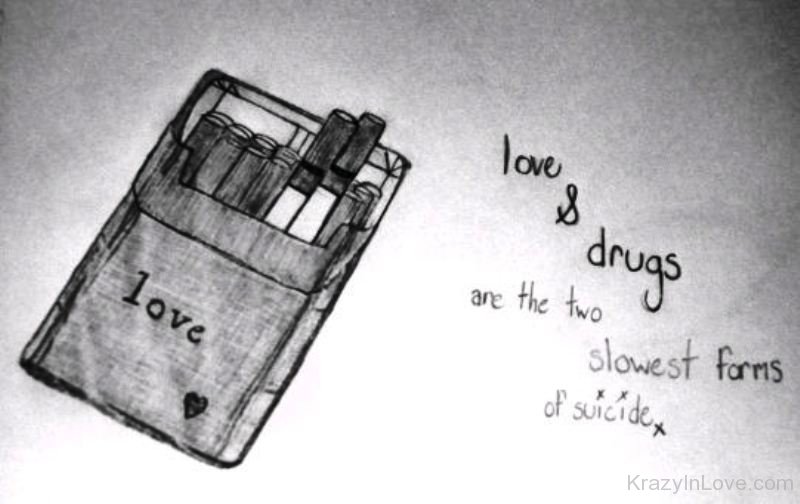 love
love
&
drugs
are the two
slowest forms
of suicide
KrazyInLove.com